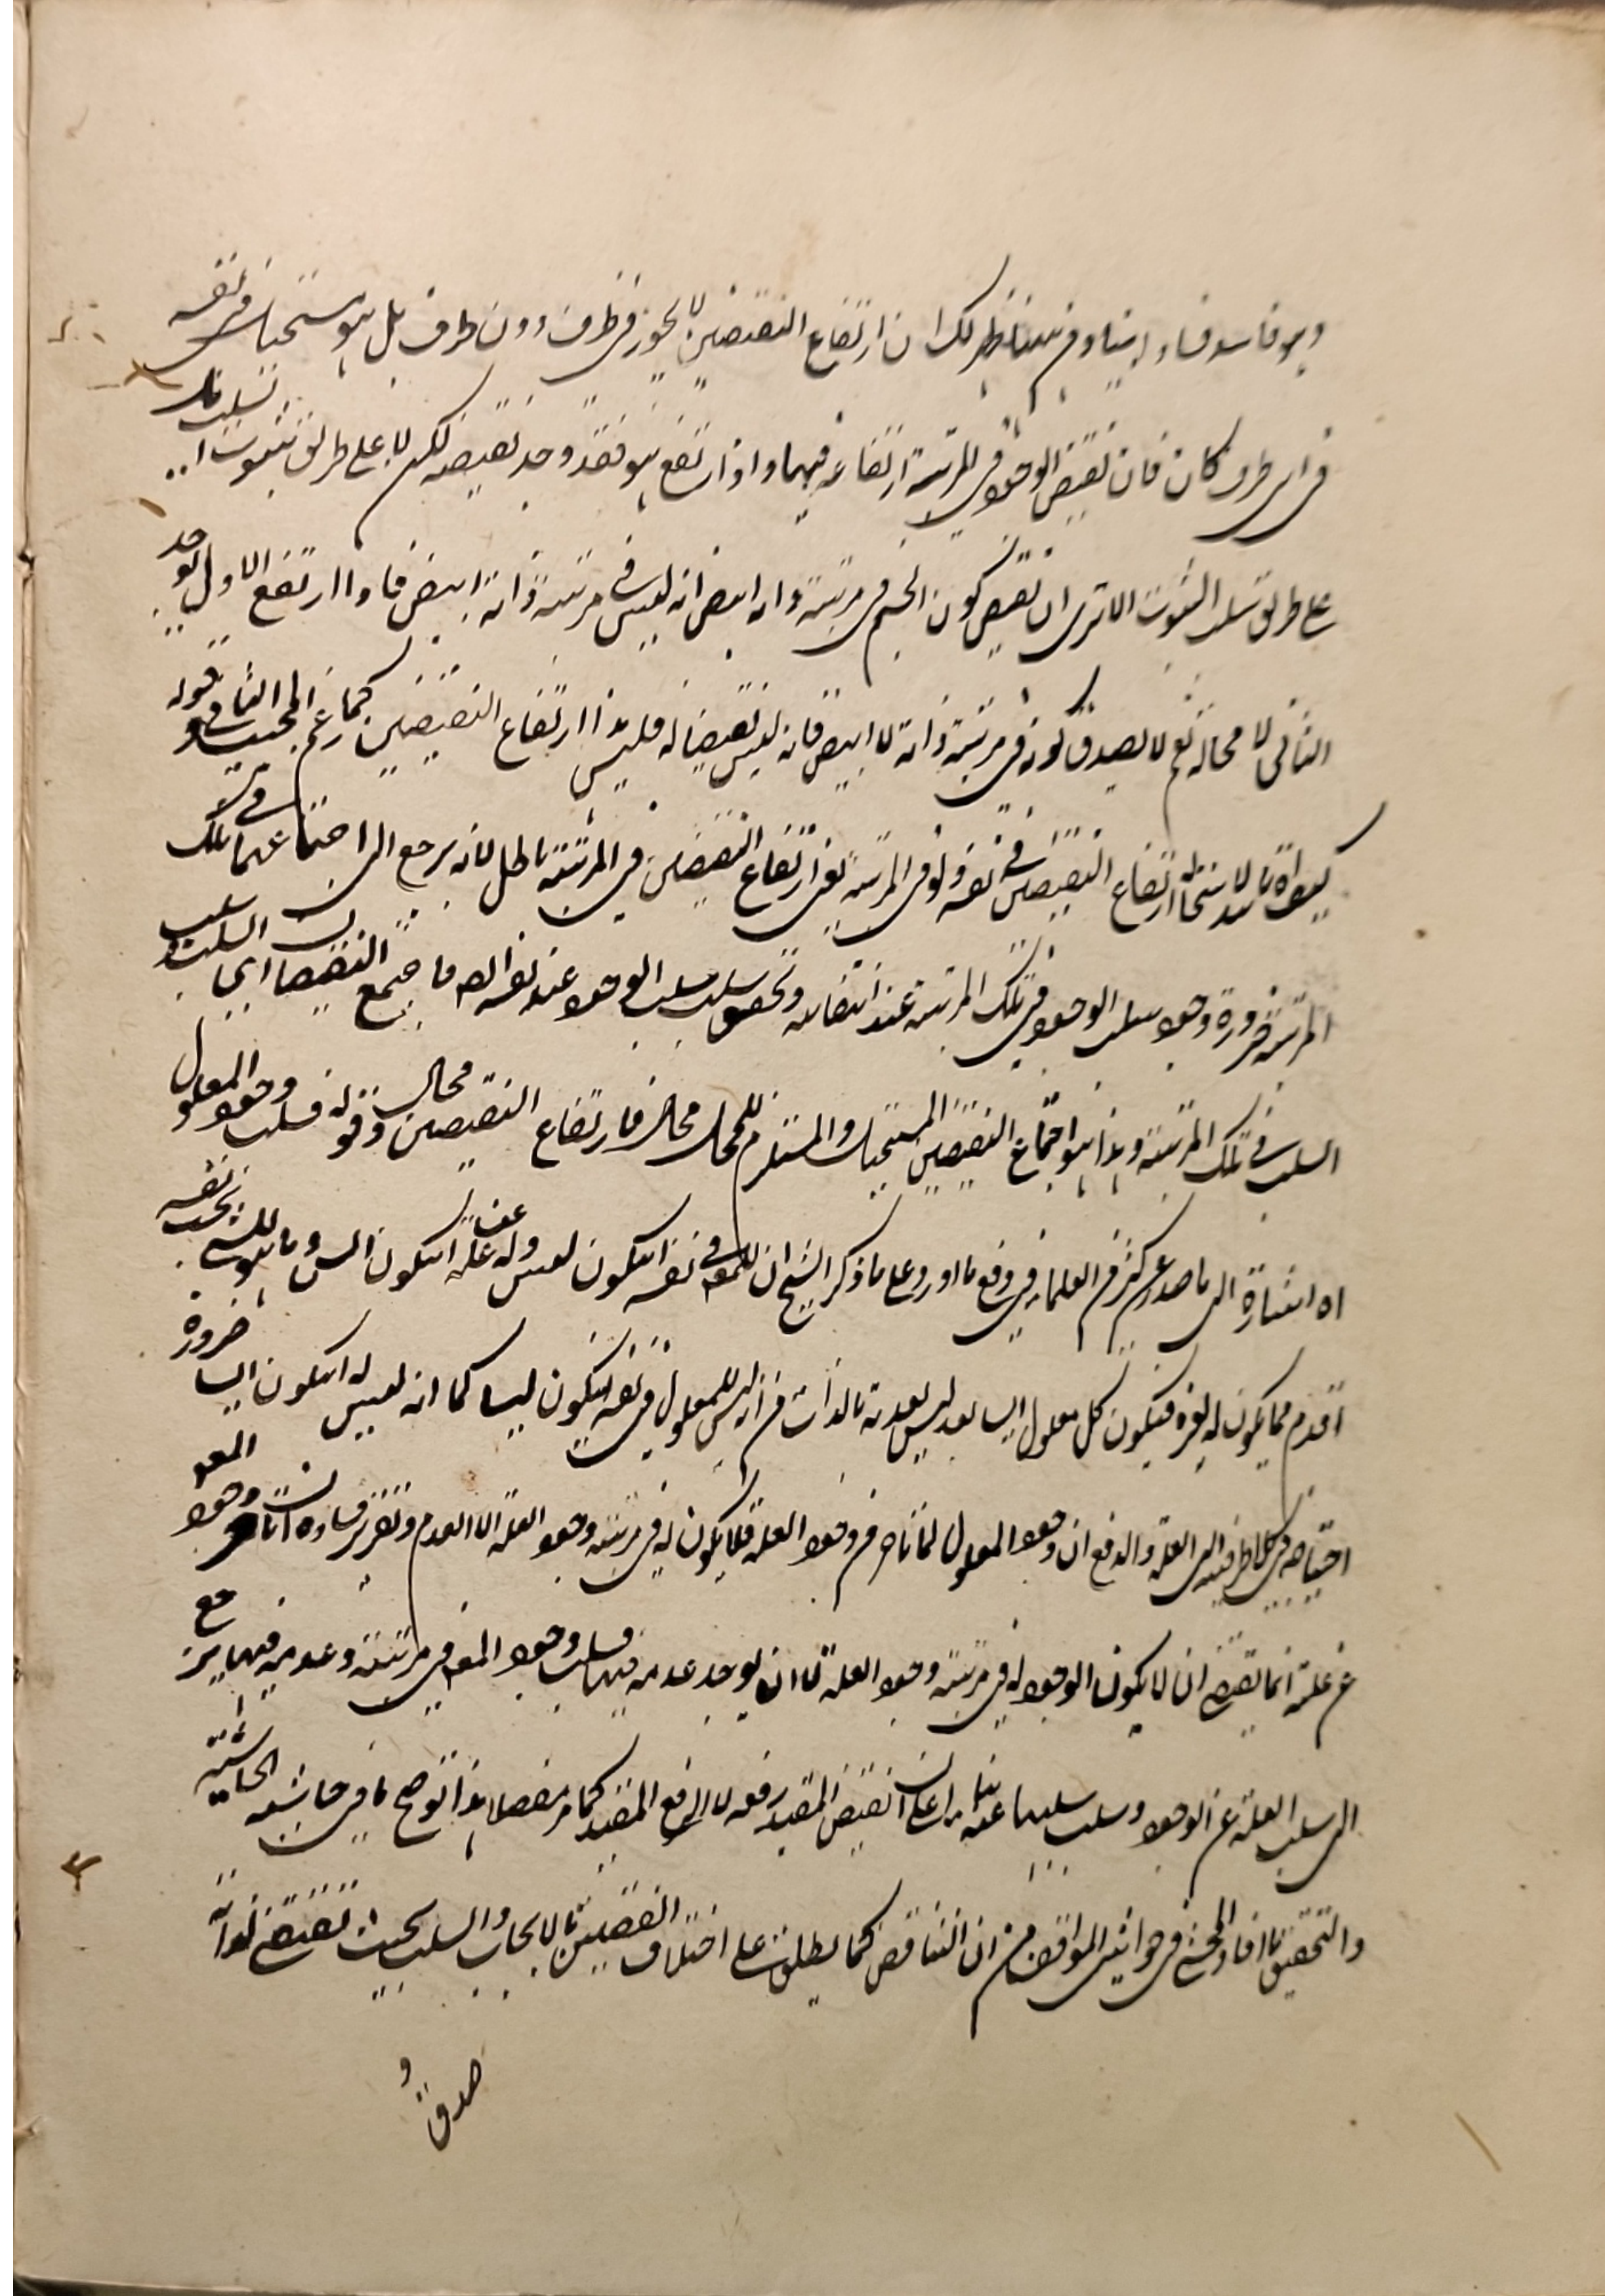 وهو فاسد فساد ابتناء ومن ههنا ظهر لك ان ارتفاع النقيضين لا يجوز في ظرف دون ظرف بل هو مستحيل في نفسه
في اي ظرف كان فان نقيض الوجود في المرتبة ارتفاعه فيها واذا ارتفع هو فقد وجد نقيضه لكن لا على طريق ثبوت السلب بل
على طريق سلب الثبوت الا ترى ان نقيض كون الجسم في مرتبة ذاته ابيض انه ليس في مرتبة ذاته ابيض فاذا ارتفع الاول يوجد
الثاني لا محالة نعم لا يصدق كونه في مرتبة ذاته لا ابيض فانه ليس نقيضا له فليس هذا ارتفاع النقيضين كما زعم المجيب الثاني قوله
ارتفاع النقيضين في نفسه ولو في المرتبة يعني ارتفاع النقيضين في المرتبة باطل لانه يرجع الى اجتماعهما في تلك
المرتبة ضرورة وجود سلب الوجود في تلك المرتبة عند انتفائه وتحقق سلب سلب الوجود عند فاجتمع النقيضان السلب وسلب
السلب في تلك المرتبة وهذا هو اجتماع النقيضين المستحيل والمستلزم للمحال محال فارتفاع النقيضين محال وقوله فسلب وجود المعلول
اه اشارة الى ما صدر عن كثير من العلماء في دفع ما اورد على ما ذكر الشيخ ان للمعلول في نفسه ان يكون ليس وله عن علته ان يكون ايس وما هو للشيء بحسب نفسه
اقدم مما يكون له لغيره فيكون كل معلول ايسا بعد ليس بعدية بالذات من انه ليس للمعلول في نفسه ان يكون ليسا كما انه ليس له ان يكون ايسا ضرورة
احتياجه في كلا طرفيه الى العلة والدفع ان وجود المعلول لما تاخر من وجود العلة فلا يكون له في مرتبة وجود العلة الا العدم وتقرير فساده ان تاخر وجود المعلول
عن علته انما يقتضي ان لا يكون الوجود له في مرتبة وجود العلة لا ان يوجد عدمه فيها فسلب وجود المعلول في مرتبته وعدمه فيها يرجع
الى سلب العلة عن الوجود وسلب سلبها عنه بناء على ان نقيض المقيد رفعه لا الرفع المقيد كما مر مفصلا هذا توضيح ما في حاشية الحاشية
والتحقيق ما افاد المحشي في حواشي المواقف من ان التناقض كما يطلق على اختلاف القضيتين بالايجاب والسلب بحيث تقتضي لذاته
صدق